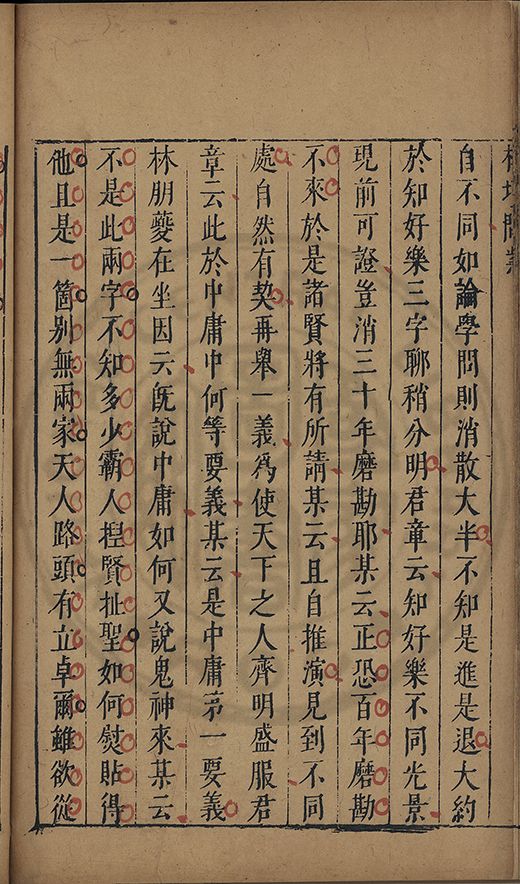 榕壇問業
自不同如論學問則消散大半不知是進是退大約
於知好樂三字聊稍分明君章云知好樂不同光景
現前可證豈消三十年磨勘耶某云正恐百年磨勘
不來於是諸賢將有所請某云且自推演見到不同
處自然有契再舉一義為使天下之人齊明盛服君
章云此於中庸中何等要義某云是中庸苐一要義
林朋夔在坐因云旣說中庸如何又說鬼神來某云
不是此兩字不知多少霸人揑賢扯聖如何熨貼得
他且是一箇别無兩家天人路頭有立卓爾雖欲從